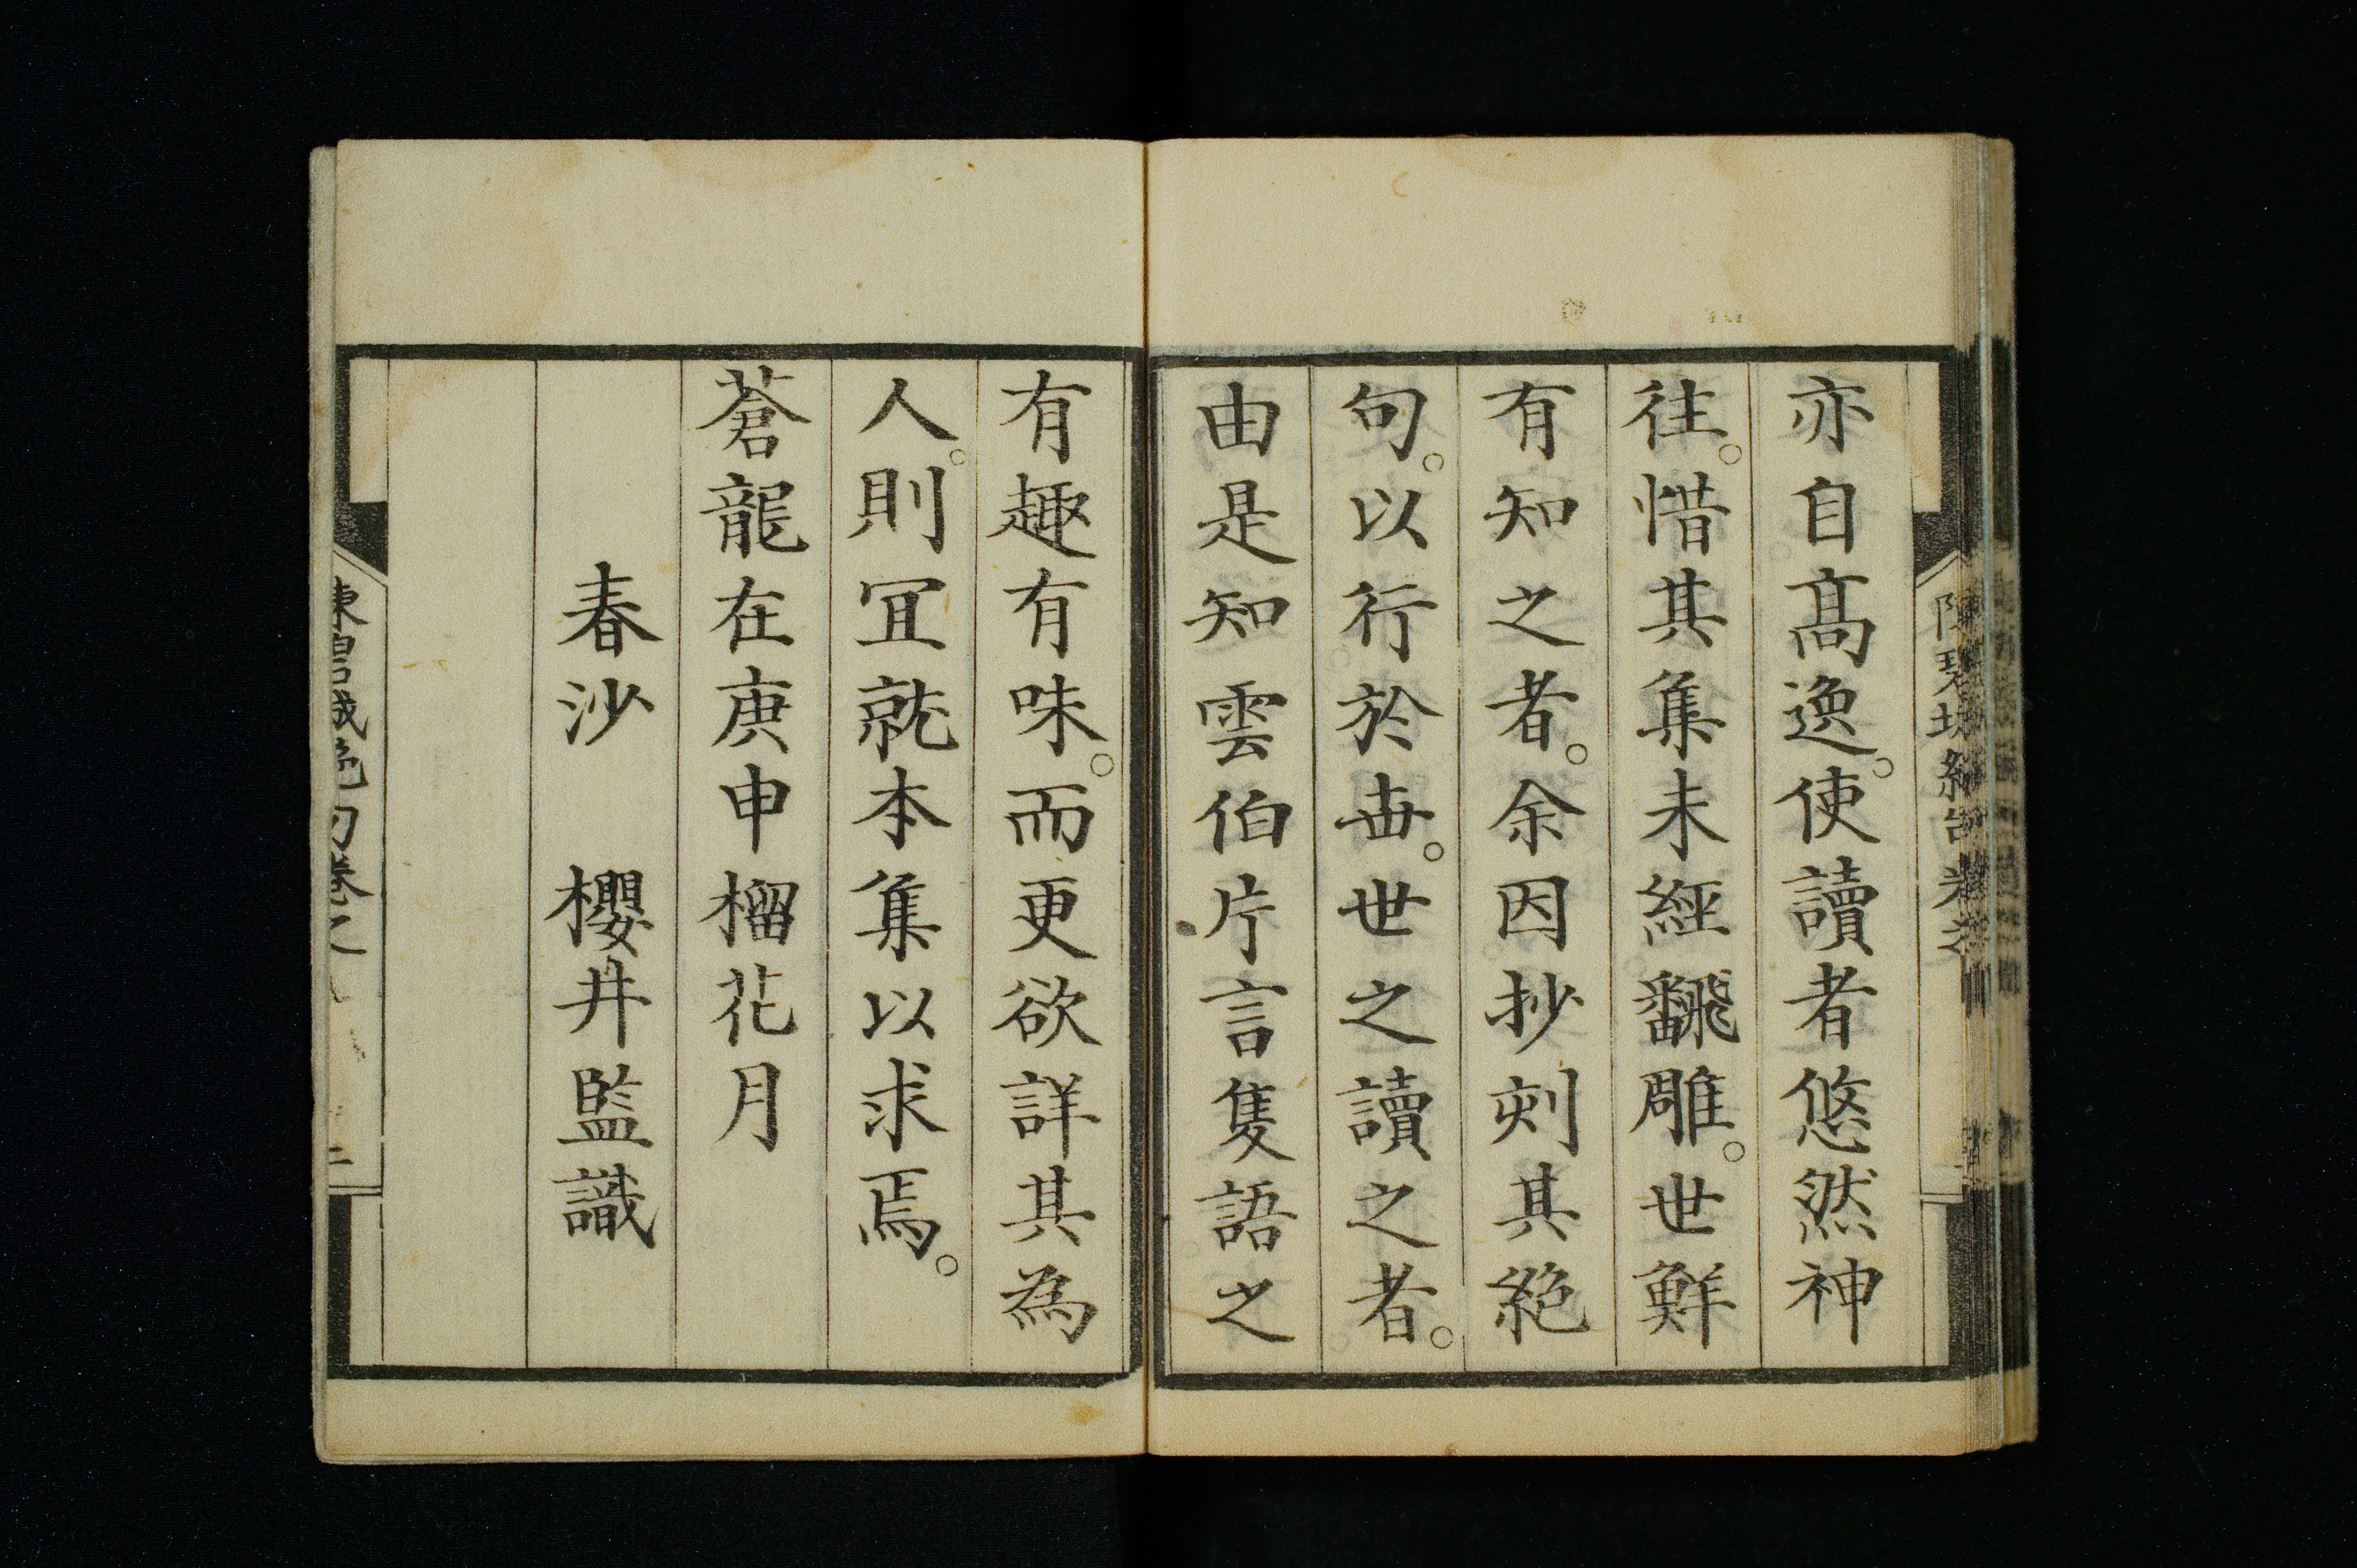 亦自高逸。使讀者悠然神
往。惜其集未經飜雕。世鮮
有知之者。余因抄刻其絶
句。以行於世。世之讀之者。
由是知雲伯片言隻語之
有趣有味。而更欲詳其為
人。則冝就本集以求焉。
蒼龍在庚申榴花月
春沙 櫻井監識